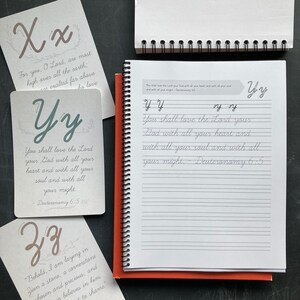 X x
For you, O Lord, are most
high over all the earth;
exalted far above
Yy
You shall love the Lord
your God with all your
heart and with all your
soul and with all
your might.
- Deuteronomy 6:5
Zz
"Behold, I am laying in
Zion a stone, a cornerstone
chosen and precious, and
believes in him
Yy
Y Y y y
You shall love the Lord your
God with all your heart and
with all your soul and with all
your might. - Deuteronomy 6:5